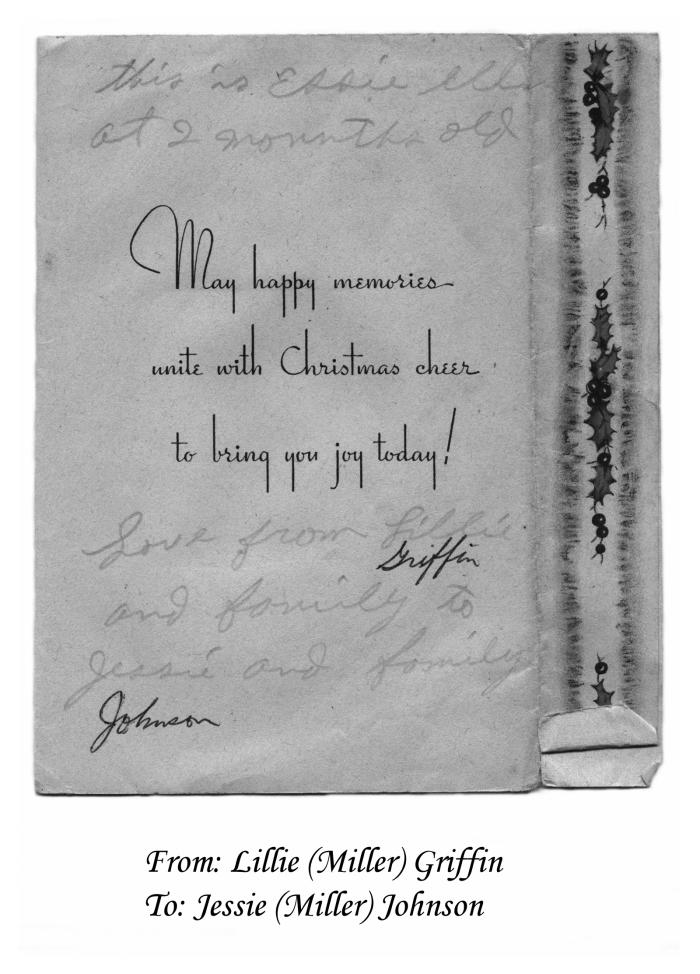 this is Essie Ellen
at 2 monnths old
May happy memories
unite with Christmas cheer
to bring you joy today!
Love from Lillie
Griffin
and family to
Jessie and family
Johnson
From: Lillie (Miller) Griffin
To: Jessie (Miller) Johnson